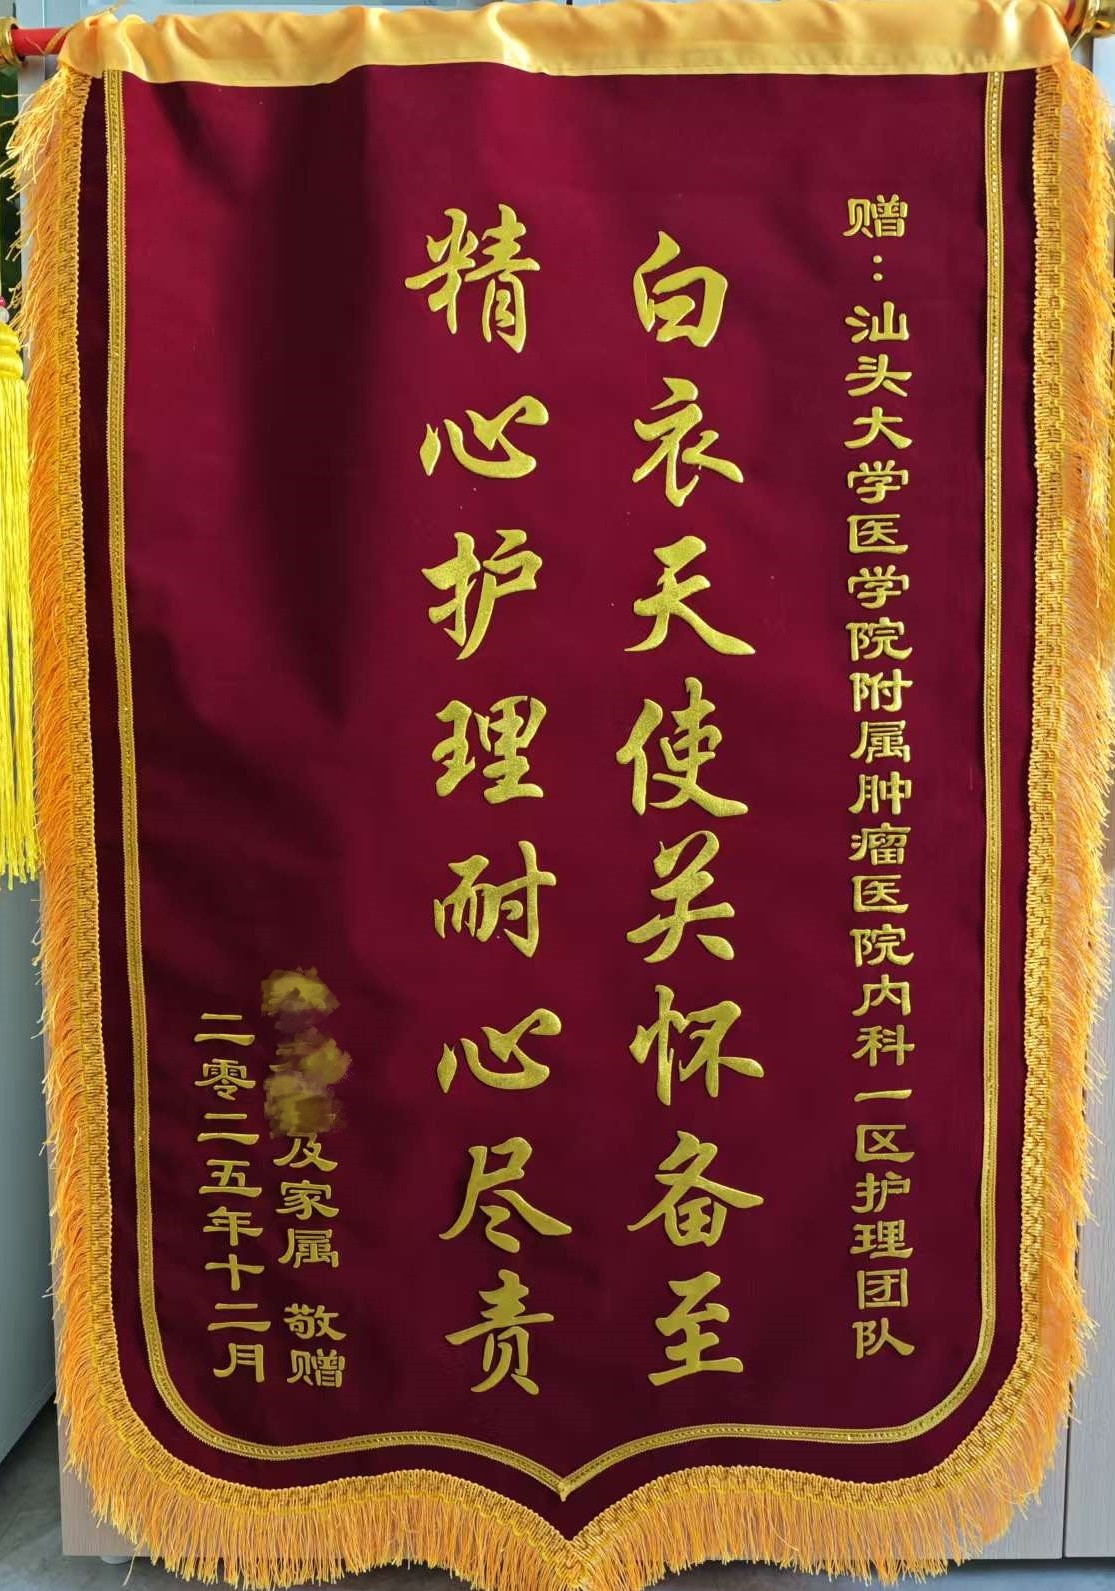 赠：汕头大学医学院附属肿瘤医院内科一区护理团队
白衣天使关怀备至
精心护理耐心尽责
及家属 敬赠
二零二五年十二月